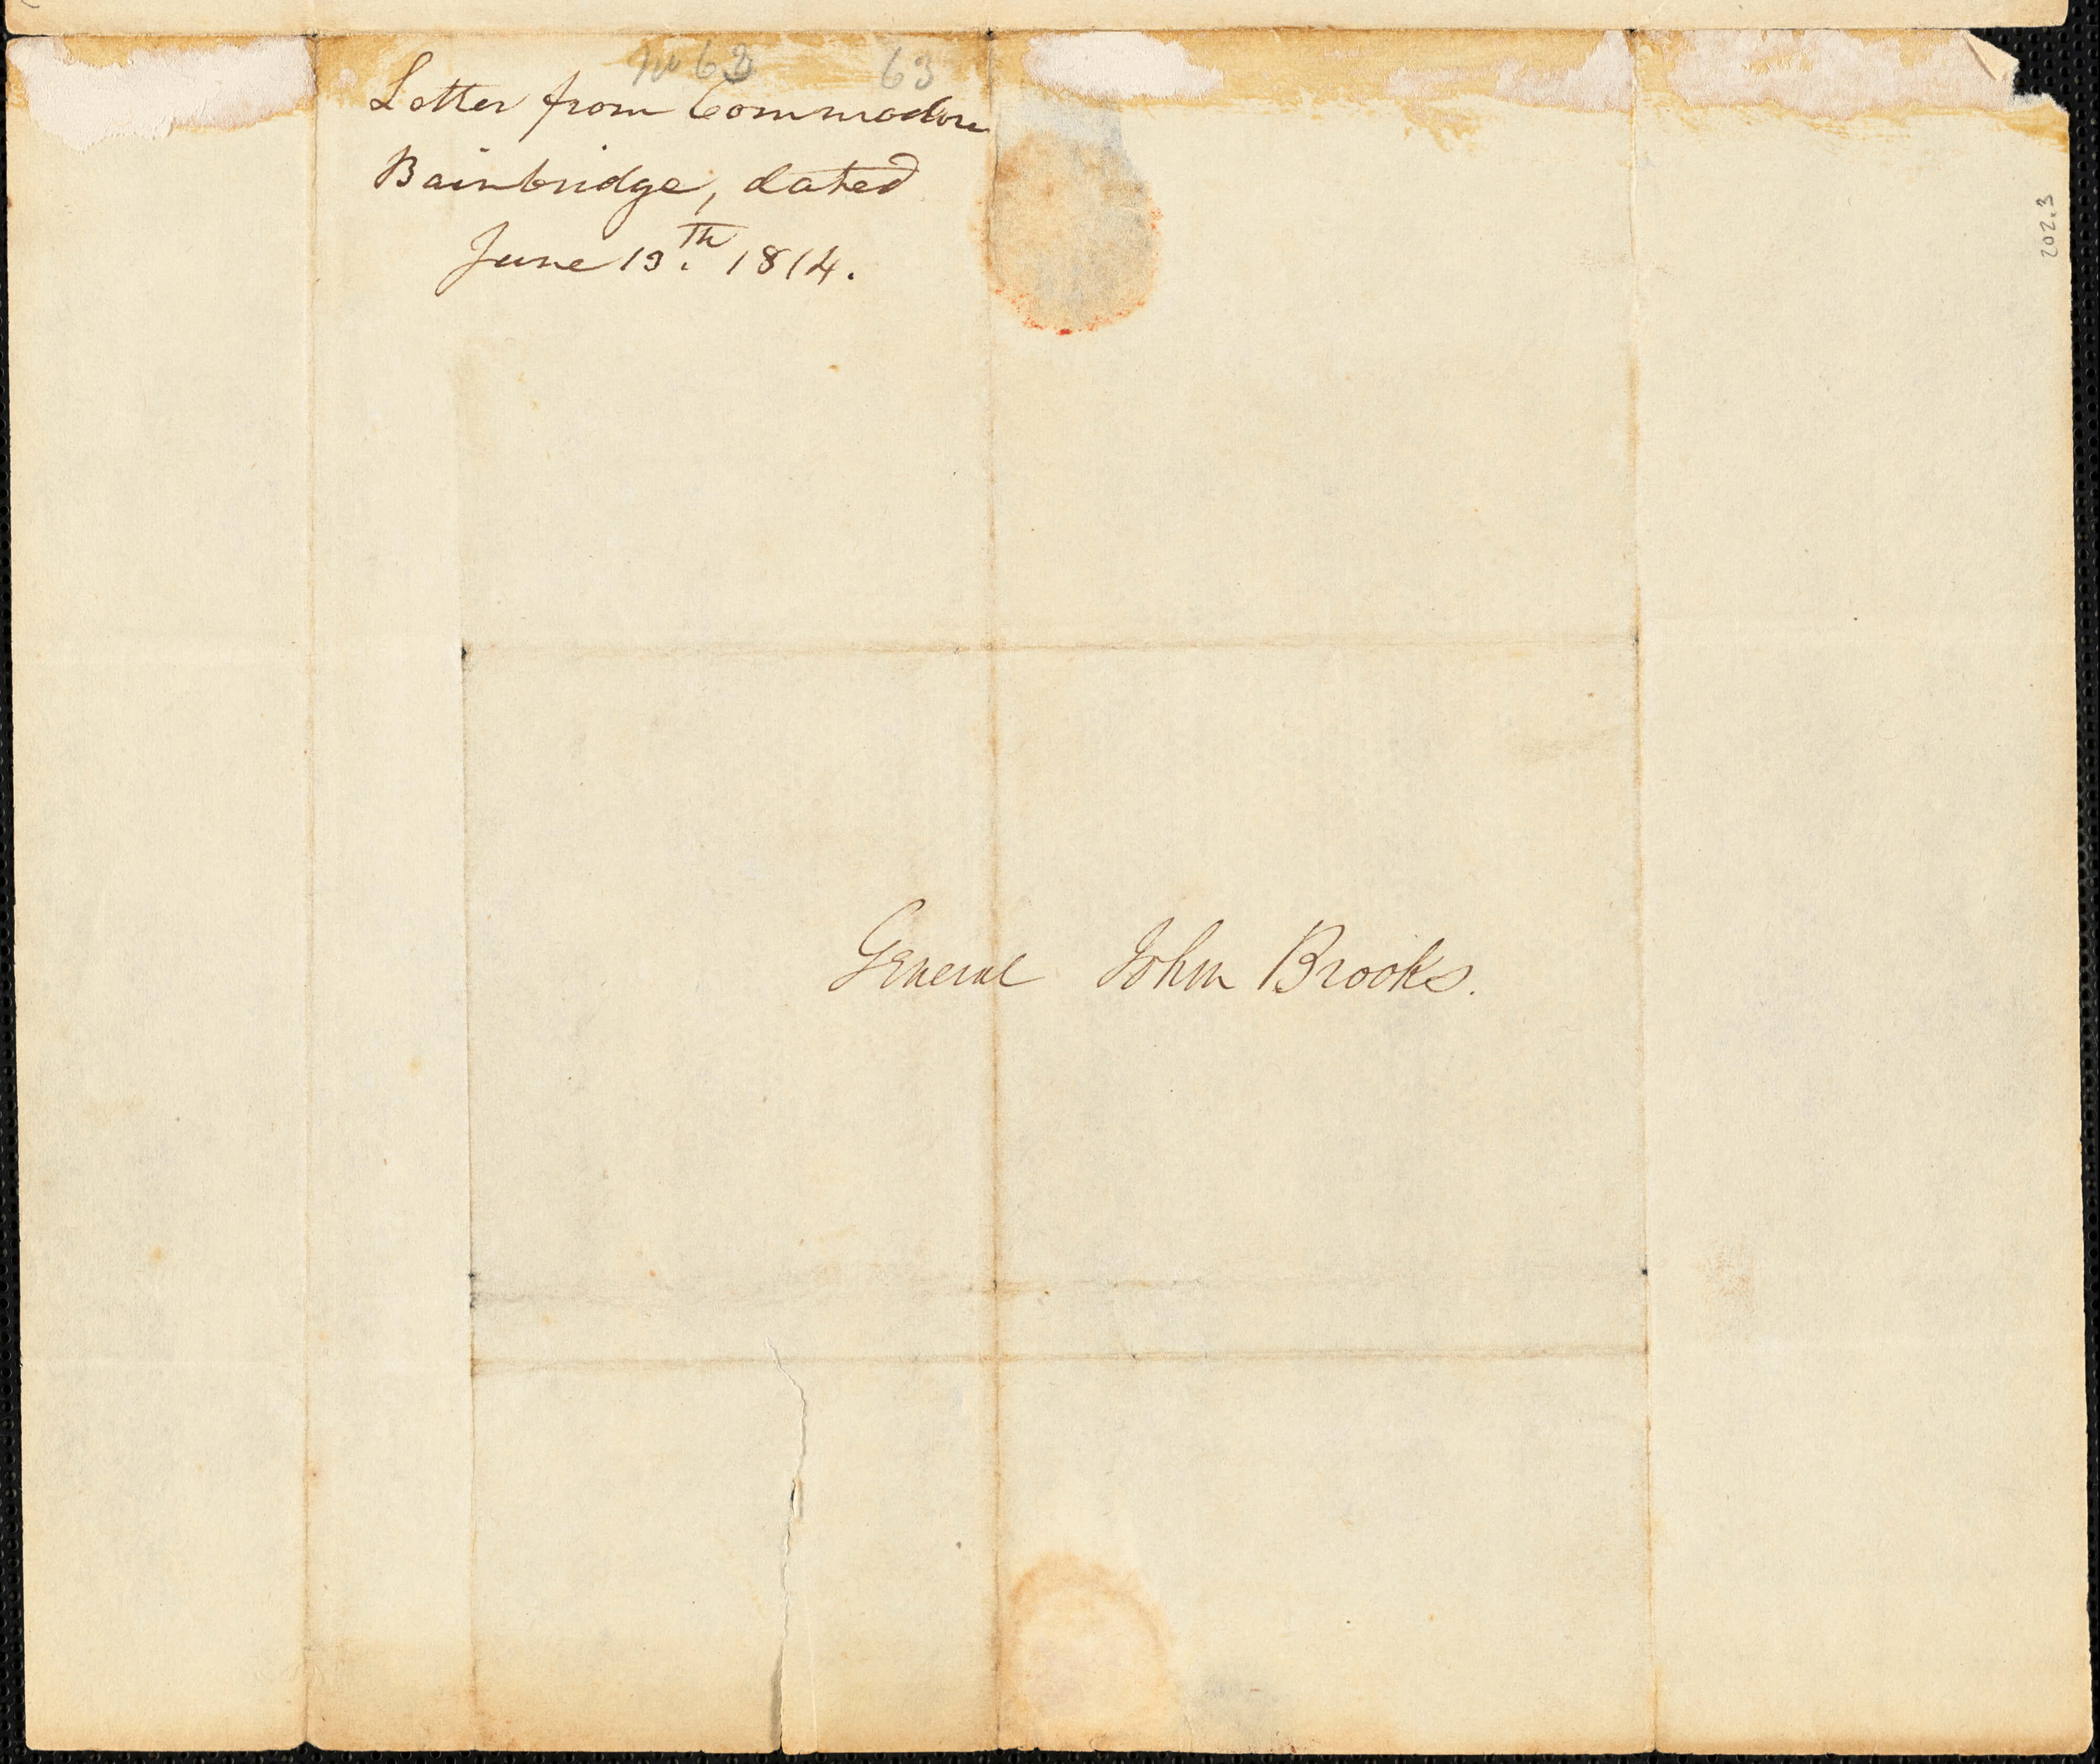 No 63 63
Letter from Commodore
Bainbridge, dated
June 13.th 1814.
202.3
General John Brooks.